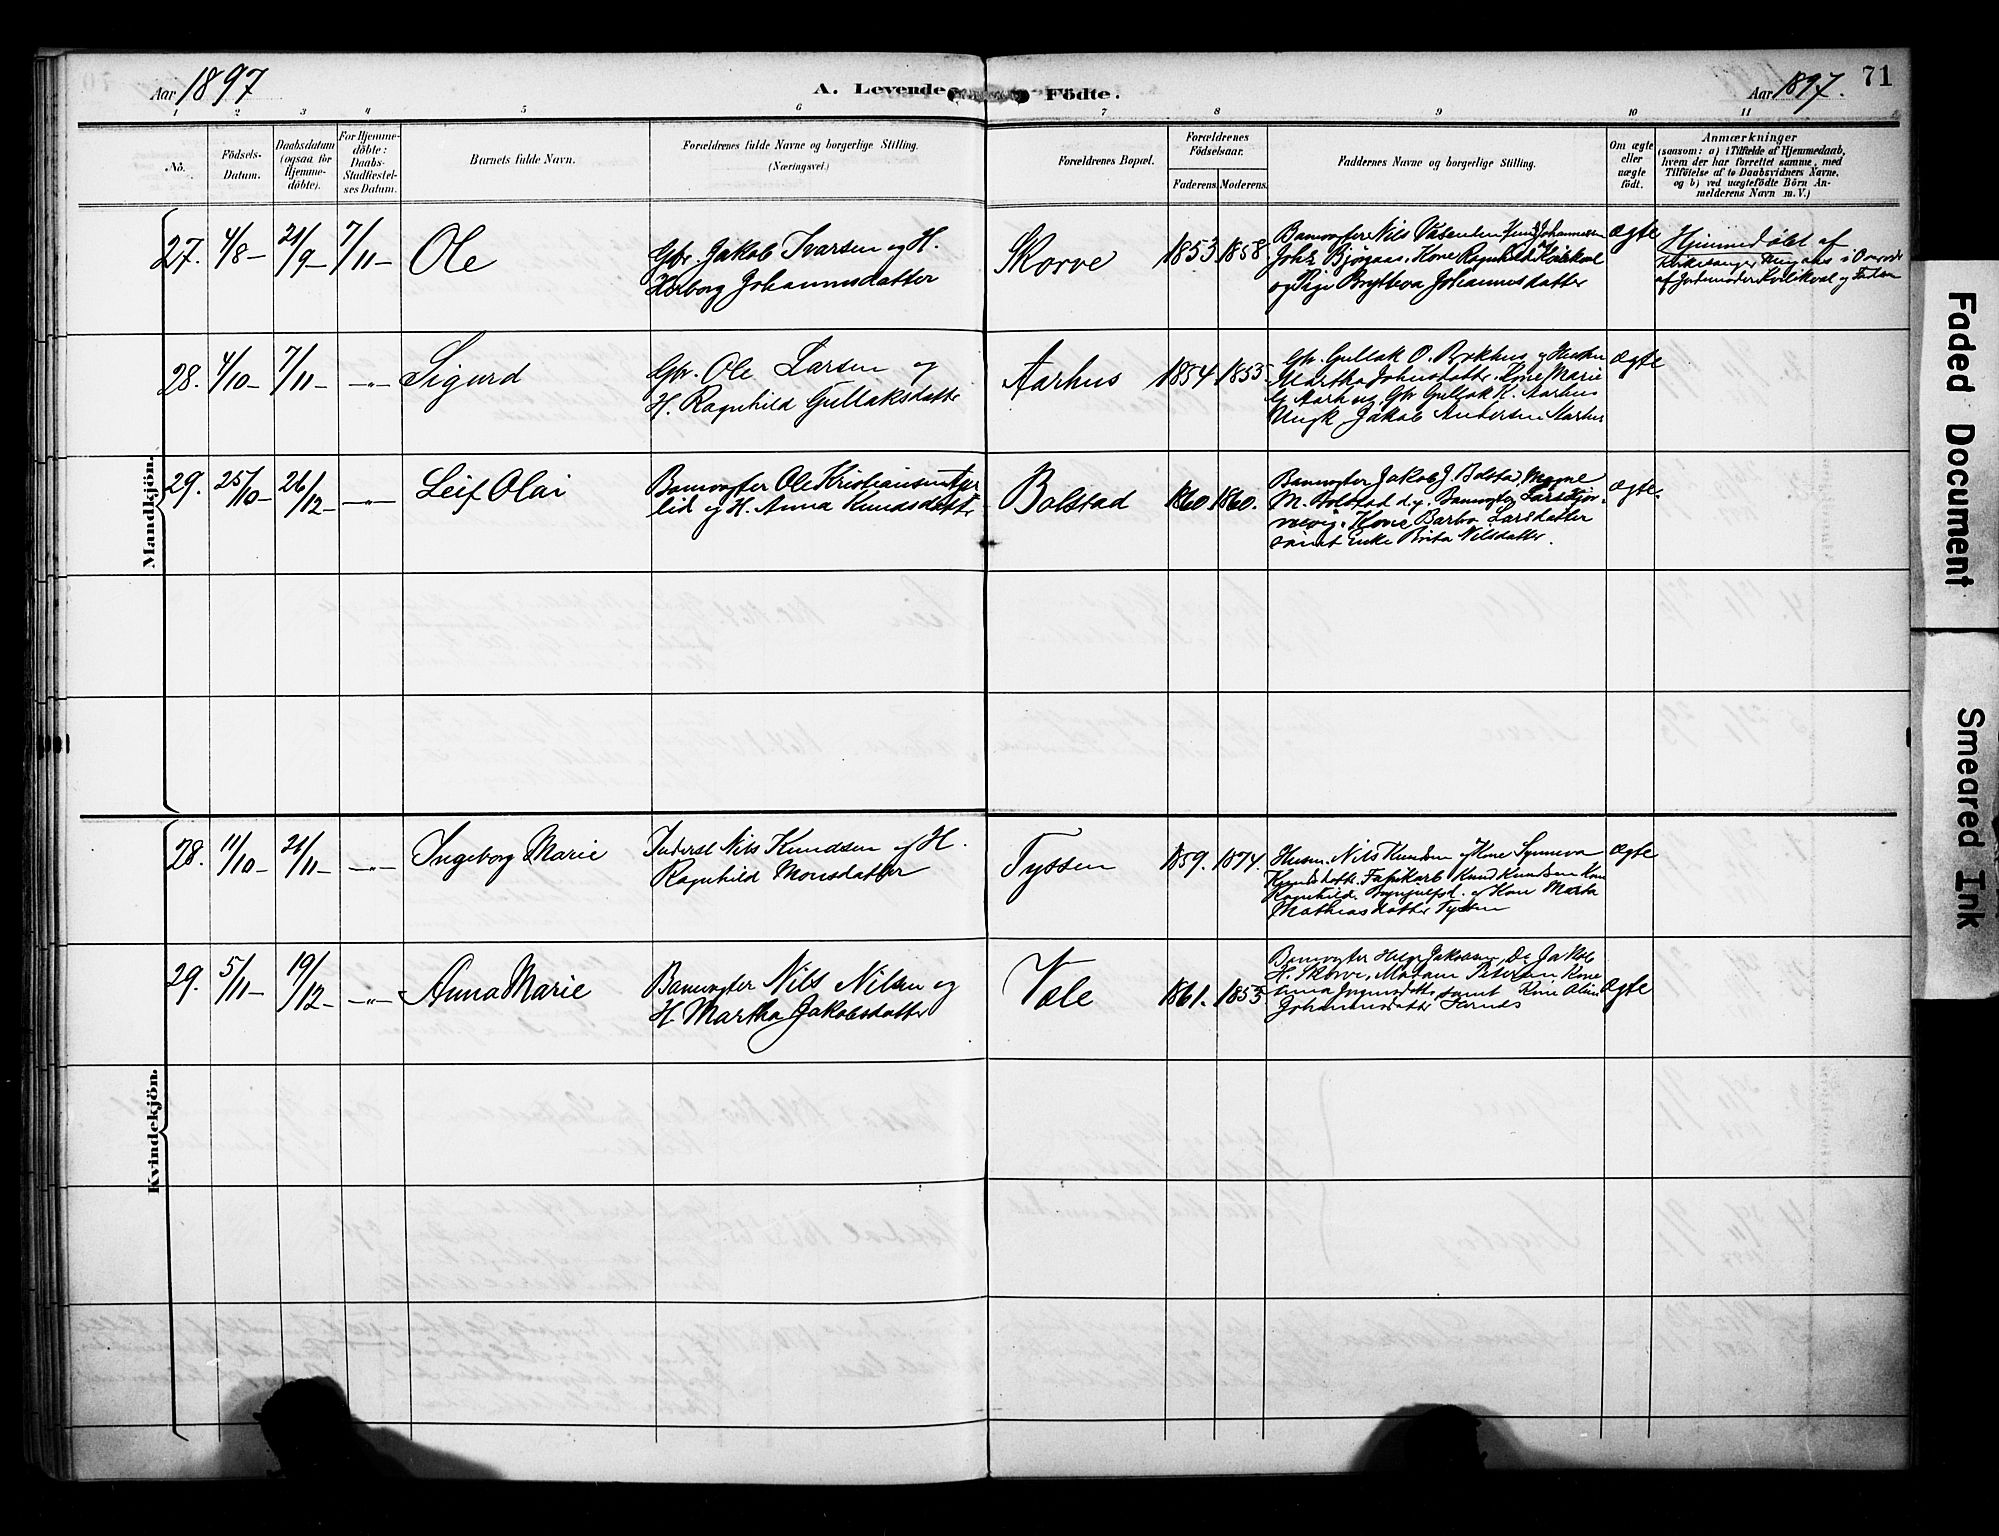 Aar 1897
A. Levende Födte.
Aar 1897. 71
1 2 3 4 5 6 7 8 9 10 11
No.
Födsels-
Datum.
Daabsdatum
(ogsaa for
Hjemme-
döbte).
For Hjemme-
döbte:
Daabs-
Stadfæstel-
ses Datum.
Barnets fulde Navn.
Forældrenes fulde Navne og borgerlige Stilling.
(Næringsvei.)
Forældrenes Bopæl.
Forældrenes
Födselsaar.
Faderens. Moderens.
Faddernes Navne og borgerlige Stilling.
Om ægte
eller
uægte
födt.
Anmærkninger
(saasom: a) i Tilfælde af Hjemmedaab,
hvem der har forrettet samme, med
Tilföielse af to Daabsvidners Navne,
og b) ved uægtefödte Börn An-
melderens Navn m. V.)
Mandkjön.
27. 4/8- 21/9- 7/11- Ole
Gbr. Jakob Ivarsen og H.
Herborg Johannesdatter
Skorve 1853 1858
Banevogter Nils Johannessen
Bjørgaas, Kone Ragnhild
og Pige Brytteva Johannesdatter
ægte
Hjemmedøbt af
Kirkesanger i
af Jordemoder og Faderen
28. 4/10- 7/11- -"- Sigurd
Gbr. Ole Larsen og
H. Ragnhild Gullaksdatter
Aarhus 1854. 1853.
Gbr. Gullak O. og
Martha Kone Marie
Aarhus, Gbr Gullak K. Aarhus
Ungk Jakob Andersen Aarhus
ægte
29. 25/10- 26/12- -"- Leif Olai
Banevogter Ole Kristiansen
lid og H. Anna Knudsdatter
Bolstad 1860. 1860.
Banevogter Jakob J. Bolstad, Mogne
M. Bolstad d.y. Banevogter Lars
Kone Barbo Larsdatter
samt Enke Brita Nilsdatter.
ægte.
Kvindekjön.
28. 11/10- 21/11- -"- Ingeborg Marie
Inderst Nils Knudsen og H.
Ragnhild Monsdatter
Tyssen 1859. 1874.
Husm. Nils Knudsen og Kone Synneva
Knudsdatter. Fabrikarb Knud Knudsen
Ragnhild og Kone Marta
Mathiasdatter Tyssen
ægte
29. 5/11- 19/12- -"- Anna Marie
Banevogter Nils Nilsen og
H. Martha Jakobsdatter
Væle 1861. 1853
Banevogter Helge Jakobsen, Do Jakob
H. Skorve, Madam Petersen Kone
Anna samt Kone
Johannesdatter
ægte
Faded Document
Smeared Ink